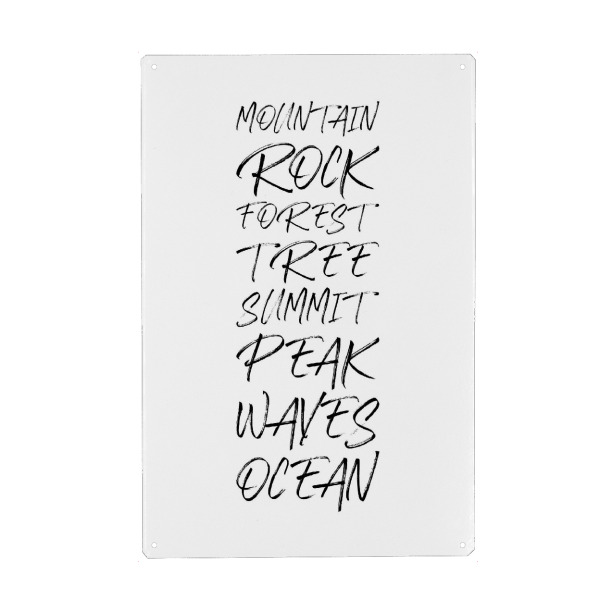 MOUNTAIN
ROCK
FOREST
TREE
SUMMIT
PEAK
WAVES
OCEAN